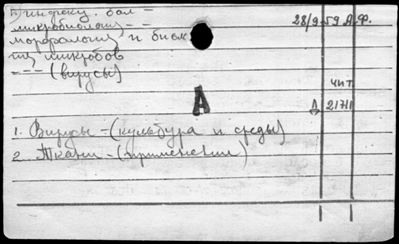 инфекц. бол-
микробиология --
морфология и биол
гия микробов
--- (вирусы)
28/9-59 А.Ф.
чит.
А
Д 21711
1. Вирусы - (культура и среды)
2. Ткани - (применение)